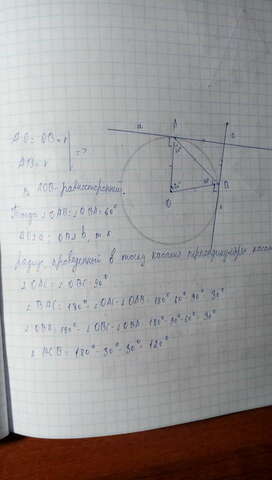 a
A
c
60°
AO = OB = r
=>
60°
B
AB = r
O
△ AOB - равносторонний.
Тогда ∠OAB = ∠OBA = 60°
OA⊥a; OB⊥b, т.к.
радиус, проведенный в точку касания перпендикулярен касат
∠OAC = ∠OBC = 90°
∠BAC = 180° - ∠OAC - ∠OAB = 180° - 60° - 90° = 30°
180° - 90° - 60° = 30°
∠ACB = 180° - 30° - 30° = 120°